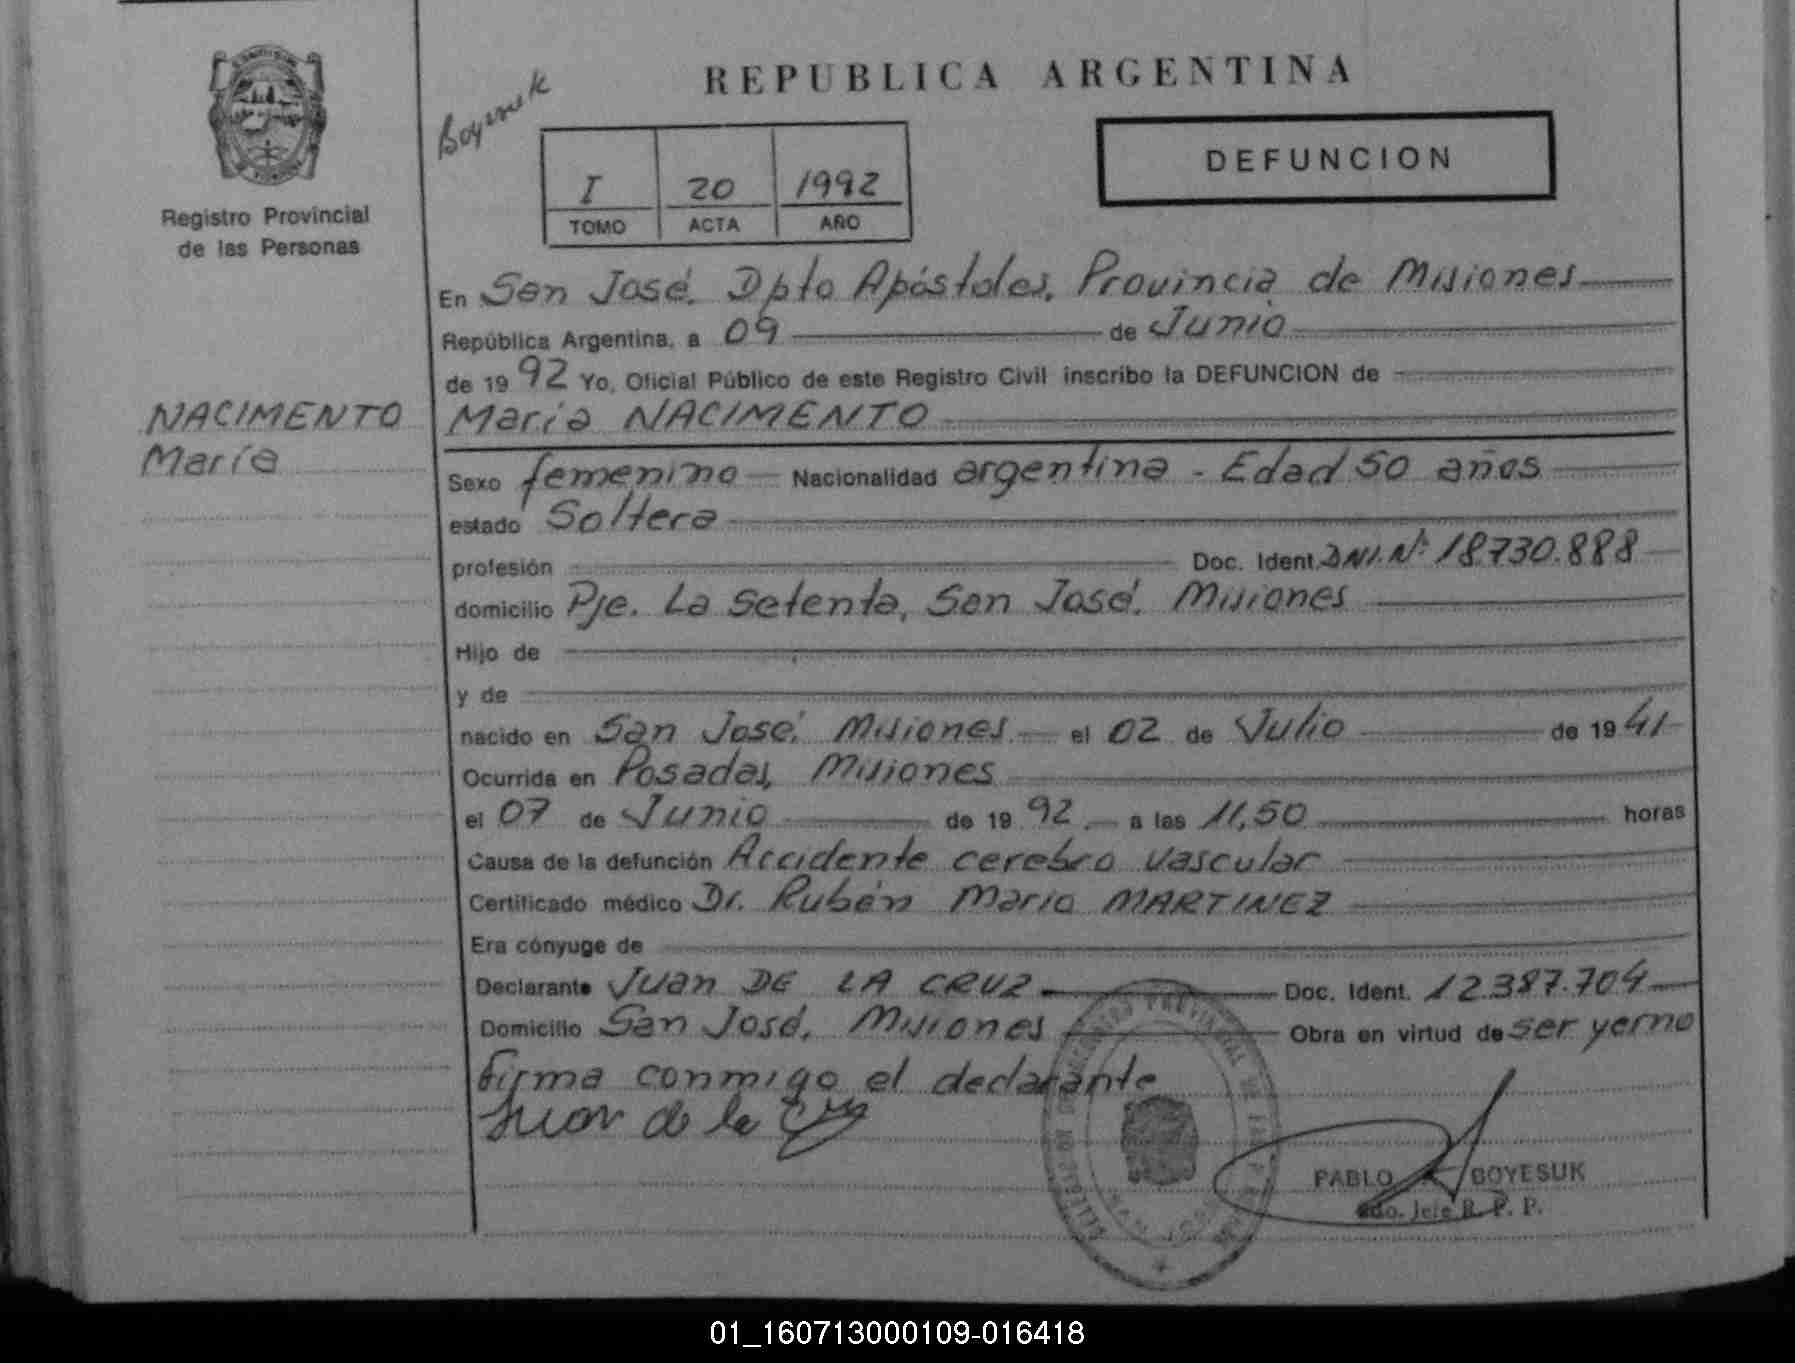 REPUBLICA ARGENTINA
DEFUNCION
I 20 1992
TOMO ACTA AÑO
Registro Provincial
de las Personas
En San José, Dpto Apóstoles, Provincia de Misiones
República Argentina, a 09 de Junio
de 1992 Yo, Oficial Público de este Registro Civil inscribo la DEFUNCION de
NACIMENTO
María
María NACIMENTO
Sexo femenino Nacionalidad argentina - Edad 50 años
estado Soltera
profesión Doc. Ident. DNI. Nº 18.730.888
domicilio Pje. La Setenta, San José, Misiones
Hijo de
y de
nacido en San José, Misiones el 02 de Julio de 1941
Ocurrida en Posadas, Misiones
el 07 de Junio de 1992 a las 11,50 horas
Causa de la defunción Accidente cerebro vascular
Certificado médico Dr. Rubén Mario MARTINEZ
Era cónyuge de
Declarante Juan DE LA CRUZ Doc. Ident. 12.387.704
Domicilio San José, Misiones Obra en virtud de ser yerno
firma conmigo el declarante
Juan de la Cruz
PABLO BOYESUK
Jefe R. P. P.
01_160713000109-016418